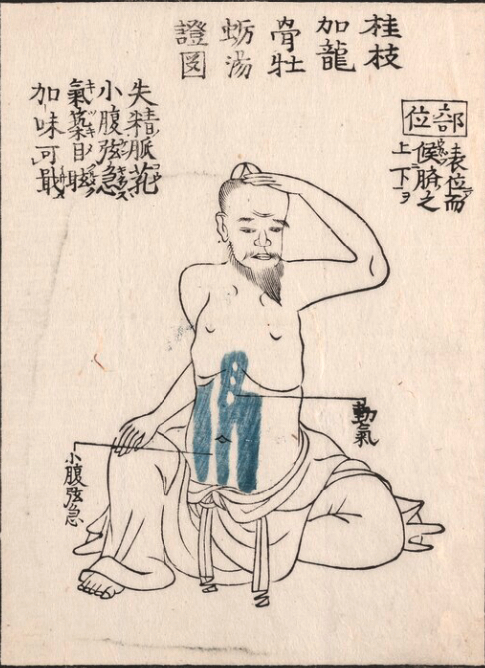 桂枝
加龍
骨牡
蛎湯
證図
部位
表位而
候臍之
上下ヲ
失精脈芤
小腹弦急
氣築目眩
加味可
動氣
小腹弦急